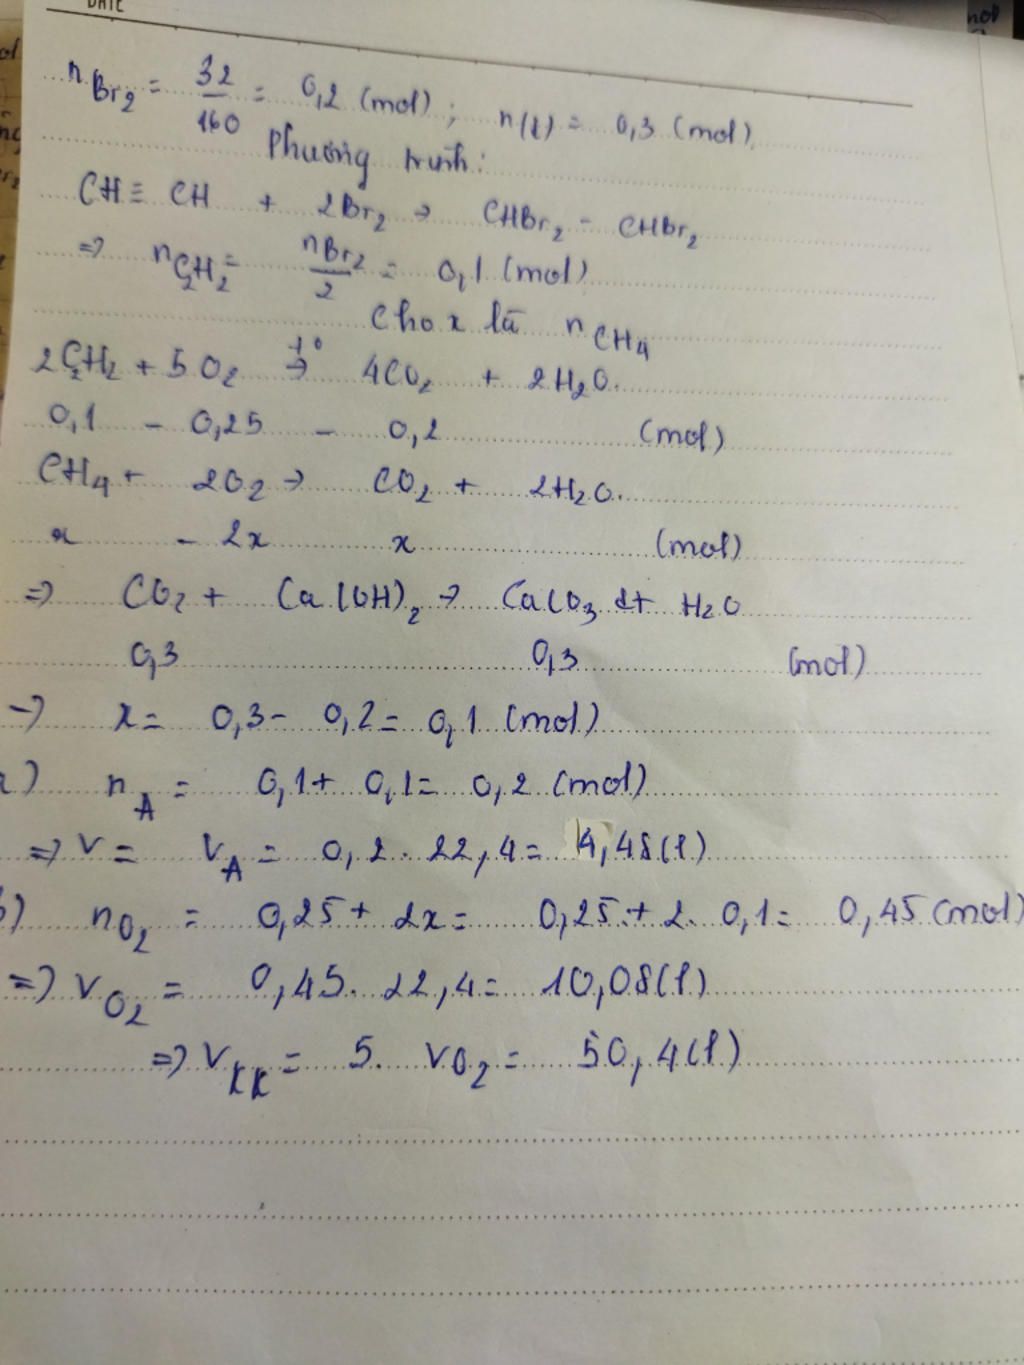 DATE
n Br₂ = 32/160 = 0,2 (mol); n(l) = 0,3 (mol)
Phương trình:
CH ≡ CH + 2Br₂ → CHBr₂ - CHBr₂
=> n C₂H₂ = nBr₂/2 = 0,1 (mol)
Cho x là n CH₄
2C₂H₂ + 5O₂ t°→ 4CO₂ + 2H₂O.
0,1 - 0,25 - 0,2 (mol)
CH₄ + 2O₂ → CO₂ + 2H₂O.
x - 2x x (mol)
=> CO₂ + Ca(OH)₂ → CaCO₃ + H₂O
0,3 0,3 (mol)
→ x = 0,3 - 0,2 = 0,1 (mol)
a) n A = 0,1 + 0,1 = 0,2 (mol)
=> V = V A = 0,2 . 22,4 = 4,48 (l)
b) n O₂ = 0,25 + 2x = 0,25 + 2. 0,1 = 0,45 (mol)
=> V O₂ = 0,45. 22,4 = 10,08 (l)
=> V KK = 5. V O₂ = 50,4 (l)